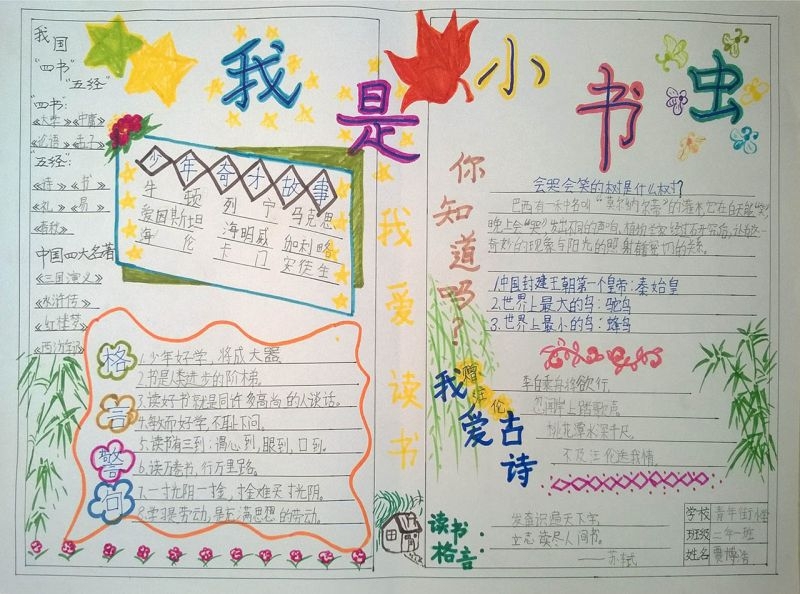 我是小书虫
我国
"四书"
"五经"
"四书:
《大学》《中庸》
《论语》《孟子》
"五经":
《诗》《书》
《礼》《易》
《春秋》
中国四大名著
《三国演义》
《水浒传》
《红楼梦》
《西游记》
少年奇才故事
牛顿 列宁 马克思
爱因斯坦 海明威 伽利略
海伦 卡门 安徒生
格言警句
1.少年好学,将成大器
2.书是人类进步的阶梯.
3.读好书就是同许多高尚的人谈话。
4.敏而好学,不耻下问.
5.读书有三到:心到,眼到,口到.
6.读万卷书,行万里路.
7.一寸光阴一寸金,寸金难买寸光阴.
8.学习是劳动,是充满思想的劳动.
我爱读书
你知道吗?
会哭会笑的树是什么树?
巴西有一种名叫"莫尔纳尔蒂"的灌木,它在白天能"笑",
晚上会"哭",发出不同的声响,植物学家经过研究后,认为这一
奇妙的现象与阳光的照射有密切的关系.
1.中国封建王朝第一个皇帝:秦始皇
2.世界上最大的鸟:鸵鸟
3.世界上最小的鸟:蜂鸟
我爱古诗
赠汪伦
李白乘舟将欲行
忽闻岸上踏歌声
桃花潭水深千尺
不及汪伦送我情
读书格言:
发奋识遍天下字,
立志读尽人间书。
——苏轼
学校 青年街小学
班级 二年一班
姓名 贾博浩